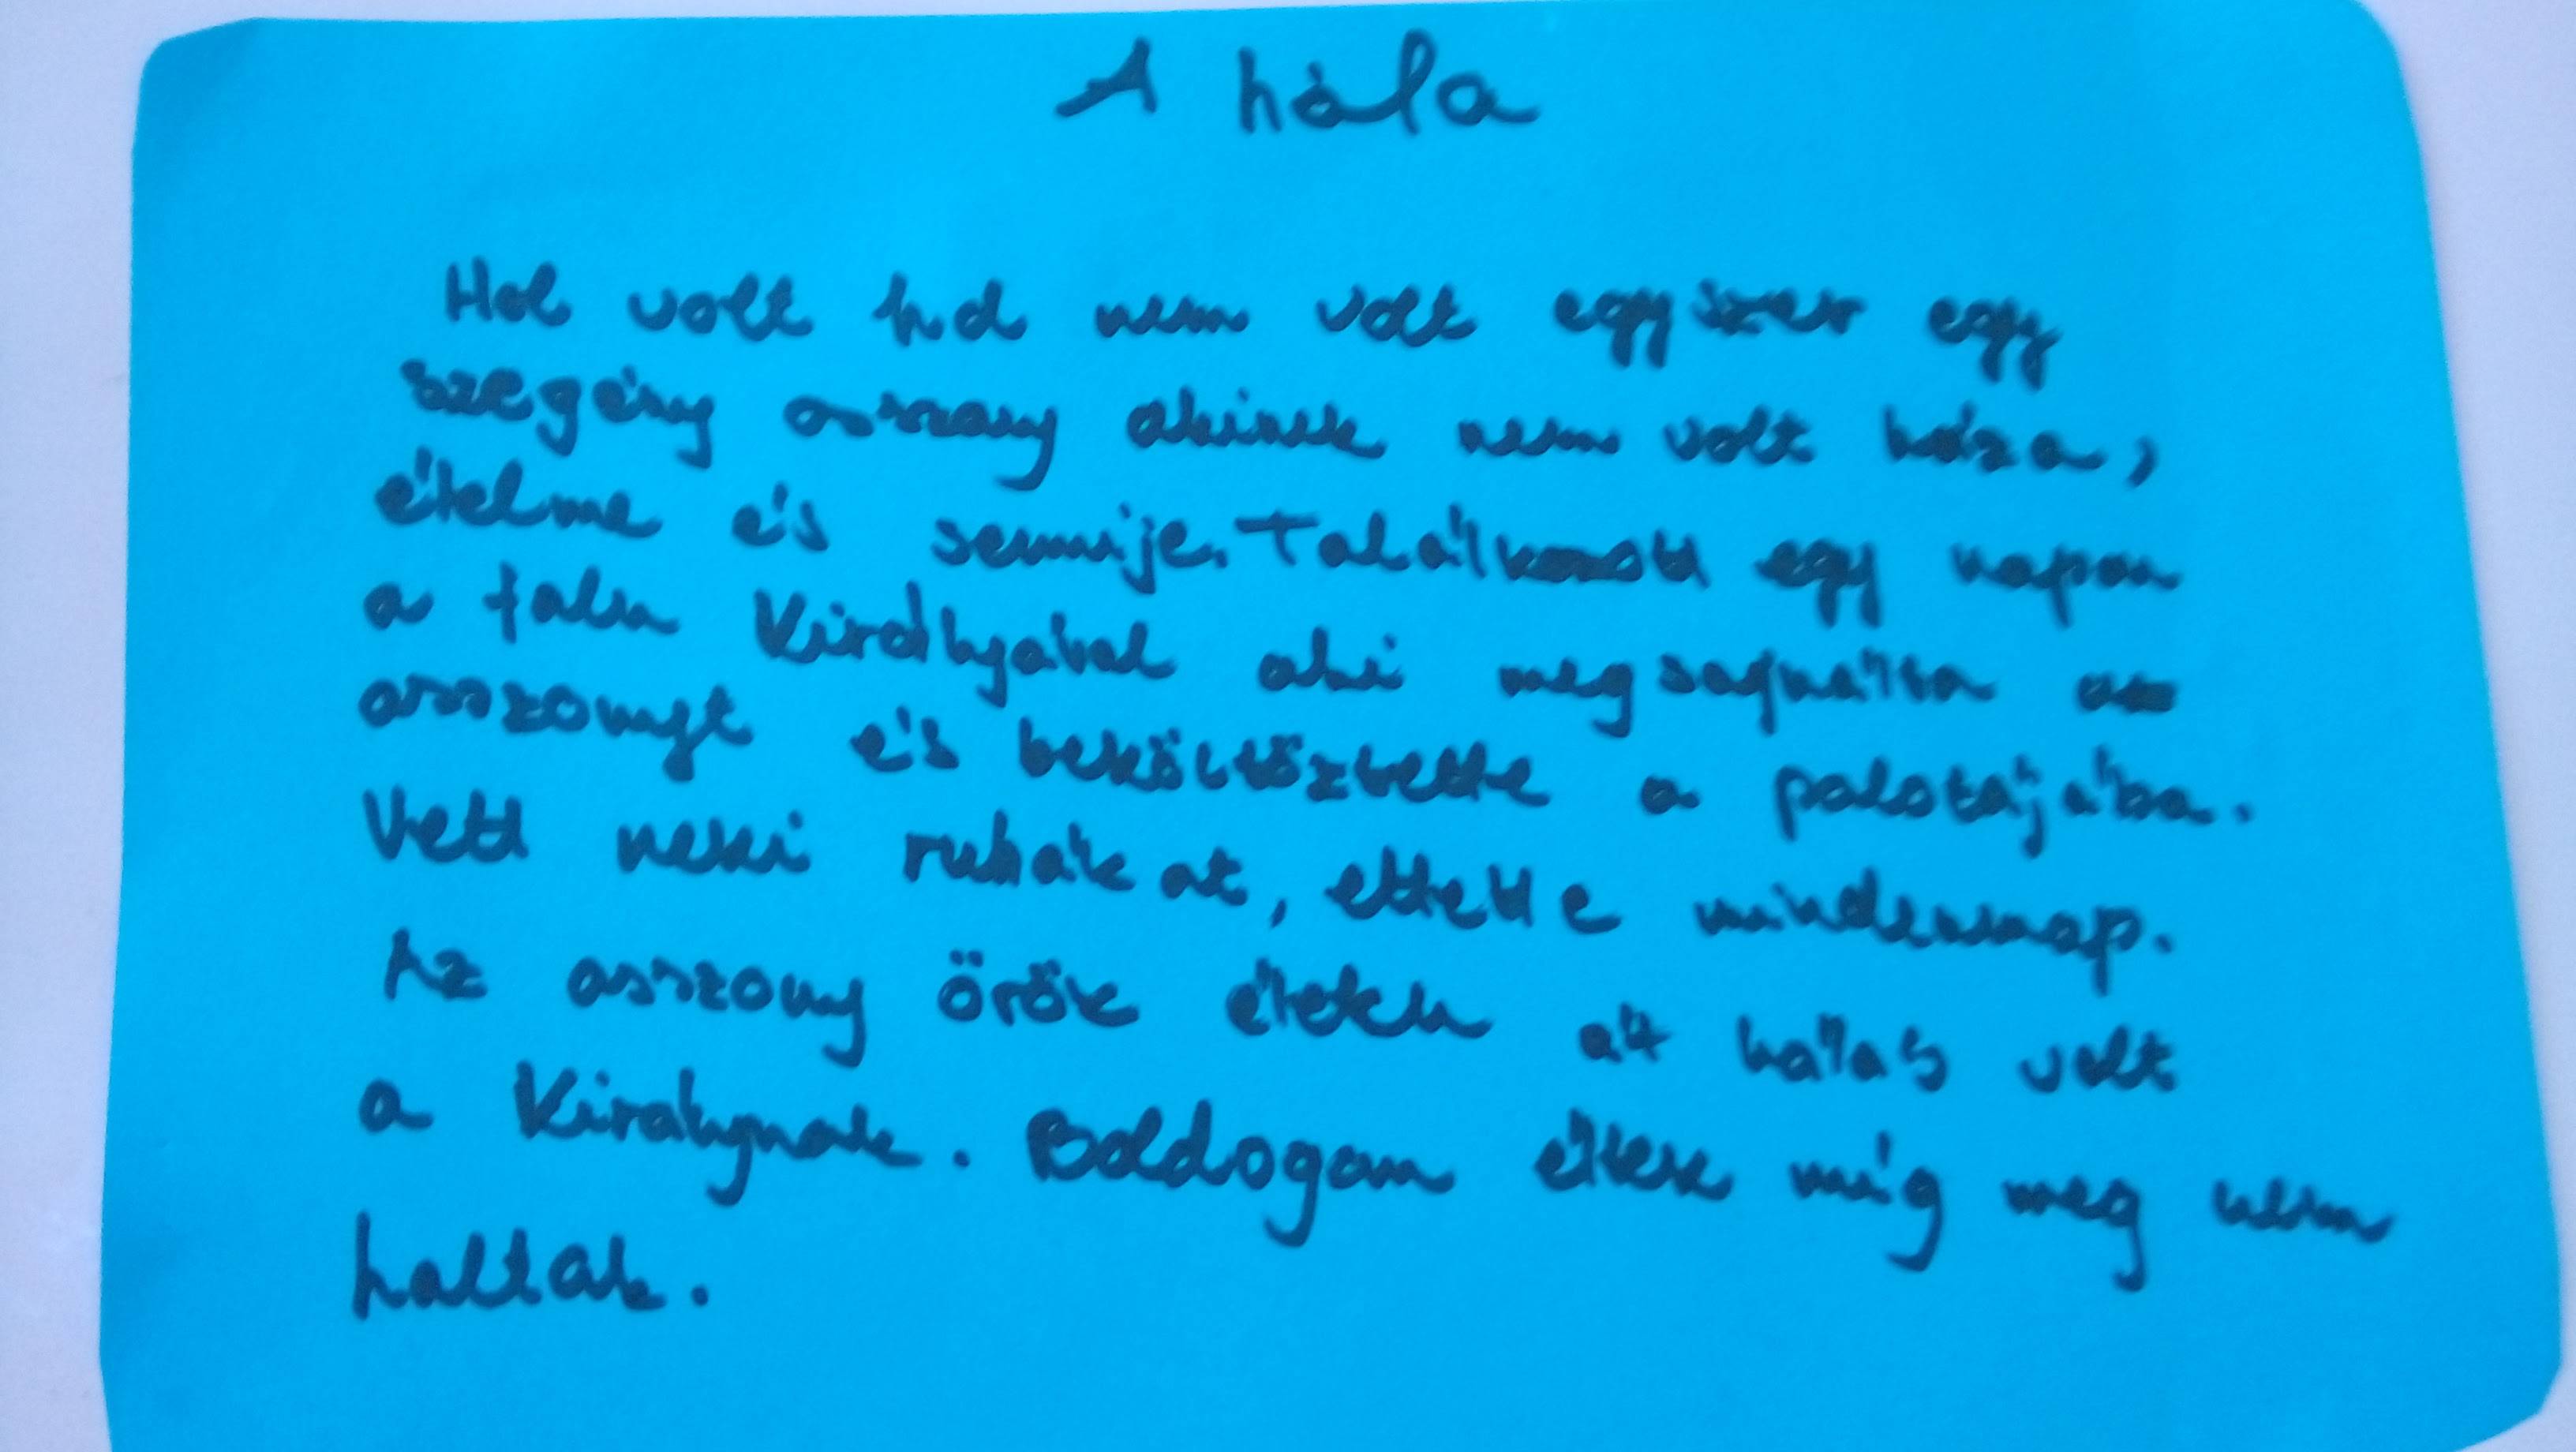 A hála
Hol volt hol nem volt egyszer egy
szegény asszony akinek nem volt háza,
ételme és semmije. Találkozott egy napon
a falu Királlyával aki megsajnálta az
asszonyt és beköltöztette a palotájába.
Vett neki ruhákat, ettette mindennap.
Az asszony örök életén át hálás volt
a Királynak. Boldogan éltek míg meg nem
haltak.